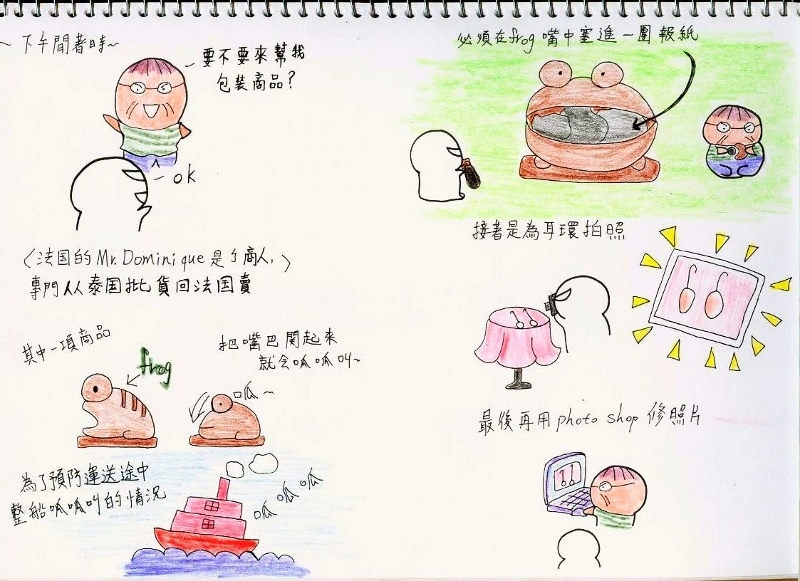 ~ 下午閒著時~
要不要來幫我
包裝商品?
OK
(法国的 Mr. Dominique 是ㄉ商人,)
專門从泰国批貨回法国賣
其中一項商品
frog
把嘴巴関起來
就会呱呱叫~
呱~
為了預防運送途中
整船呱呱叫的情況
呱 呱 呱
必須在frog 嘴中塞進一團報紙
接著是為耳環拍照
最後再用 photo shop 修照片